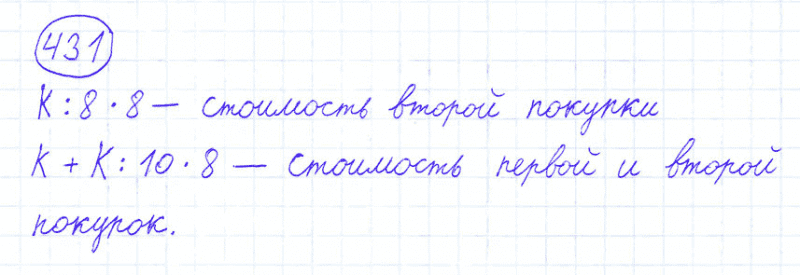 431
К : 8 · 8 — стоимость второй покупки
К + К : 10 · 8 — стоимость первой и второй
покупок.